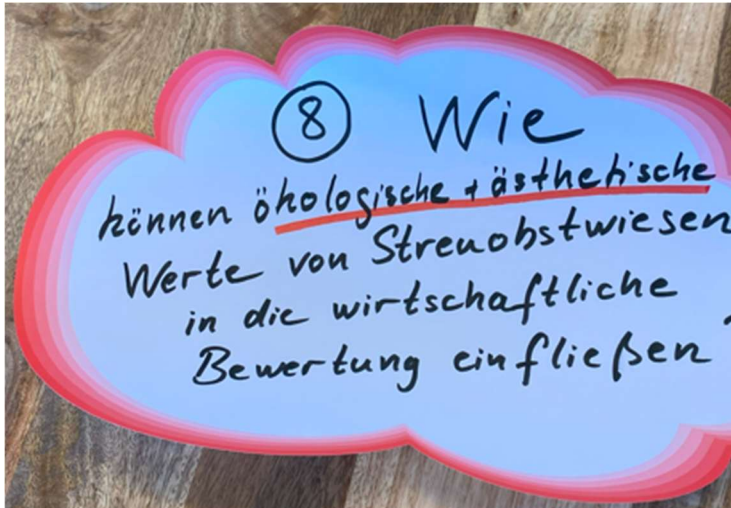 ⑧ Wie
können ökologische + ästhetische
Werte von Streuobstwiesen
in die wirtschaftliche
Bewertung einfließen